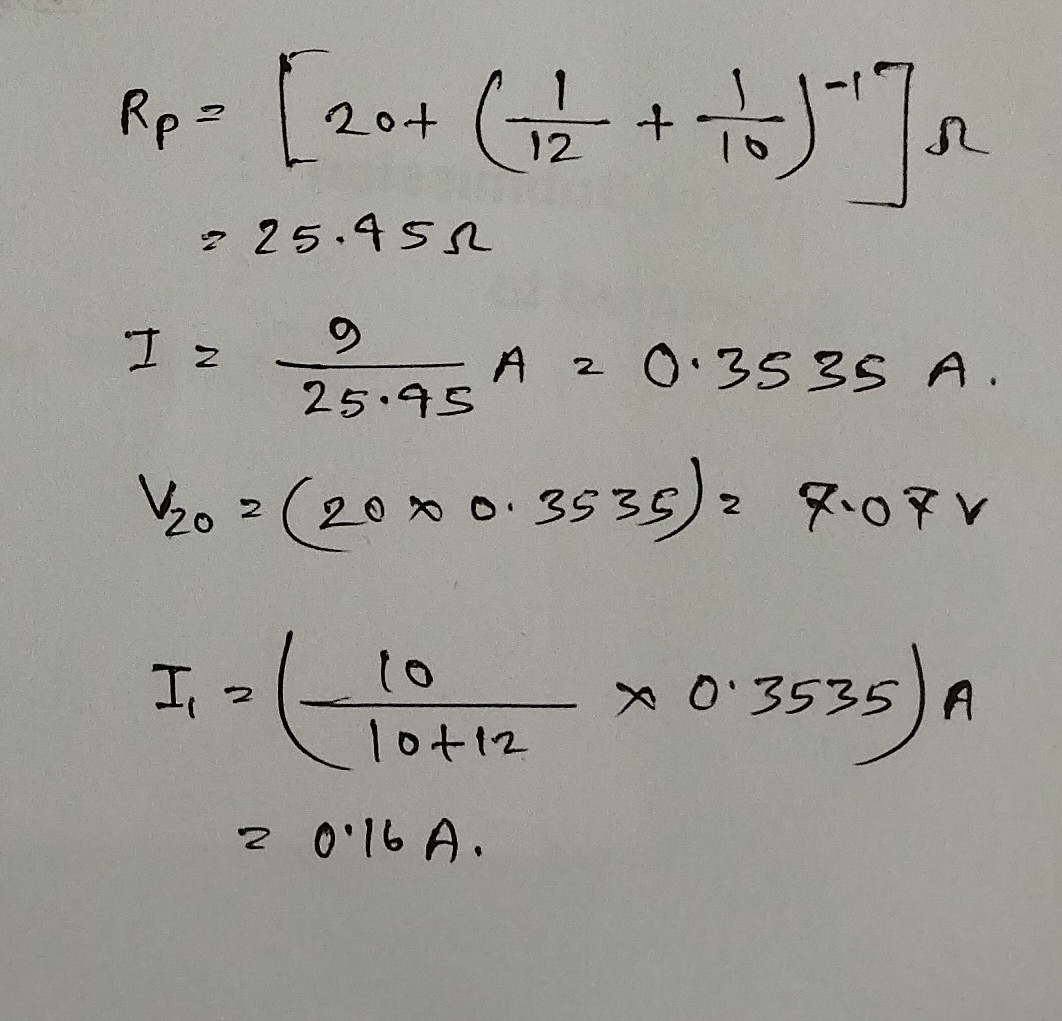 Rp = [20+ (1/12 + 1/10)^-1] Ω
= 25.45Ω
I = 9/25.45 A = 0.3535 A.
V20 = (20 × 0.3535) = 7.07 V
I1 = (10/10+12 × 0.3535) A
= 0.16 A.